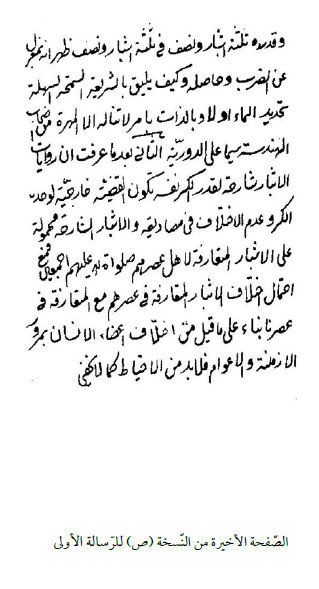 و قدره ثلثة اشبار و نصف في ثلثة اشبار و نصف ظهر انه بمعزل
عن الضرب و حاصله و كيف يليق بالشريعة السمحة السهلة
تحديد الماء اولا و بالذات بامر لا تناله الا المهرة من اصحاب
الهندسة سيما على الثاني بعد ما عرفت ان روايات
الاشبار شارحة لقدر الكر نعم تكون القضية خارجية لوحدة
الكر و عدم الاختلاف في مصاديقه و الاشبار الشارحة محمولة
على الاشبار المتعارفة لاهل عصرهم صلوات الله عليهم اجمعين فمع
احتمال اختلاف الاشبار المتعارفة في عصرهم مع المتعارفة في
عصرنا بناء على ما قيل من اختلاف اعضاء الانسان بمرور
الازمنة و الاعوام فلا بد من الاحتياط كما لا يخفى
الصّفحة الأخيرة من النّسخة (ص) للرّسالة الأولى